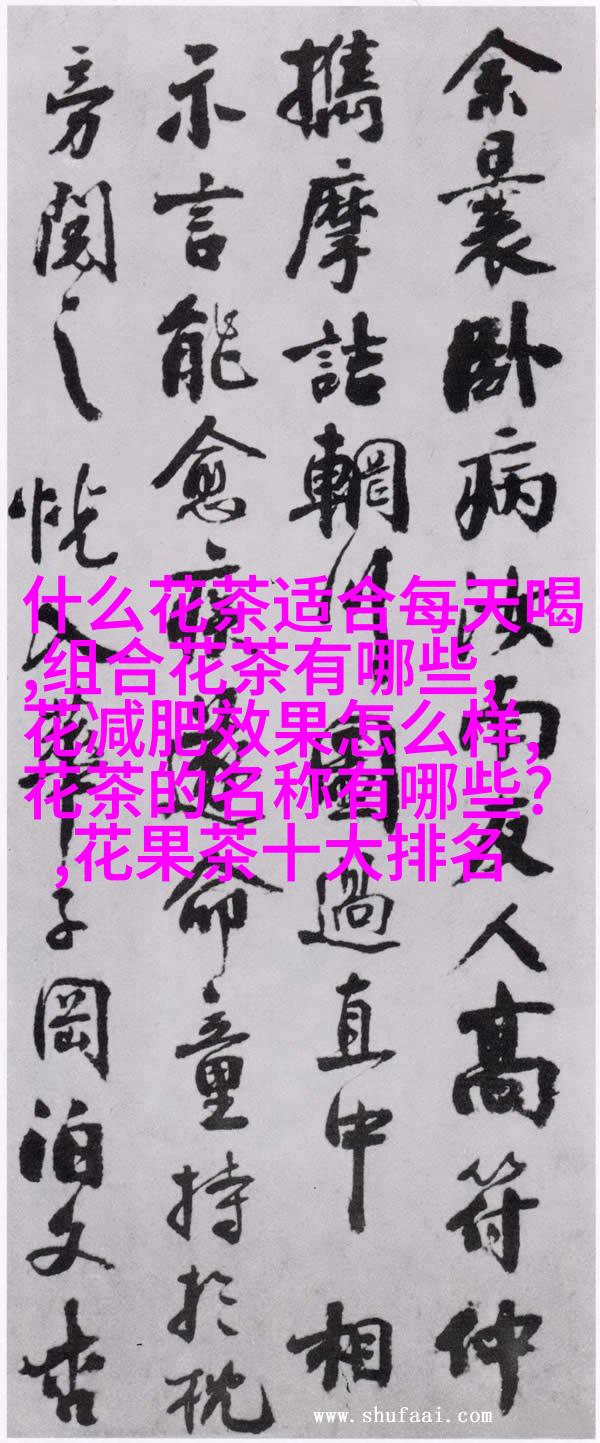 余曩臥病汝南友人高符仲
攜摩詰輞川圖過直中相
示言能愈疾遂命童持於枕
旁閱之恍入華子岡泊文杏
什么花茶适合每天喝
,组合花茶有哪些,
花减肥效果怎么样,
花茶的名称有哪些?
,花果茶十大排名
www.shufaai.com